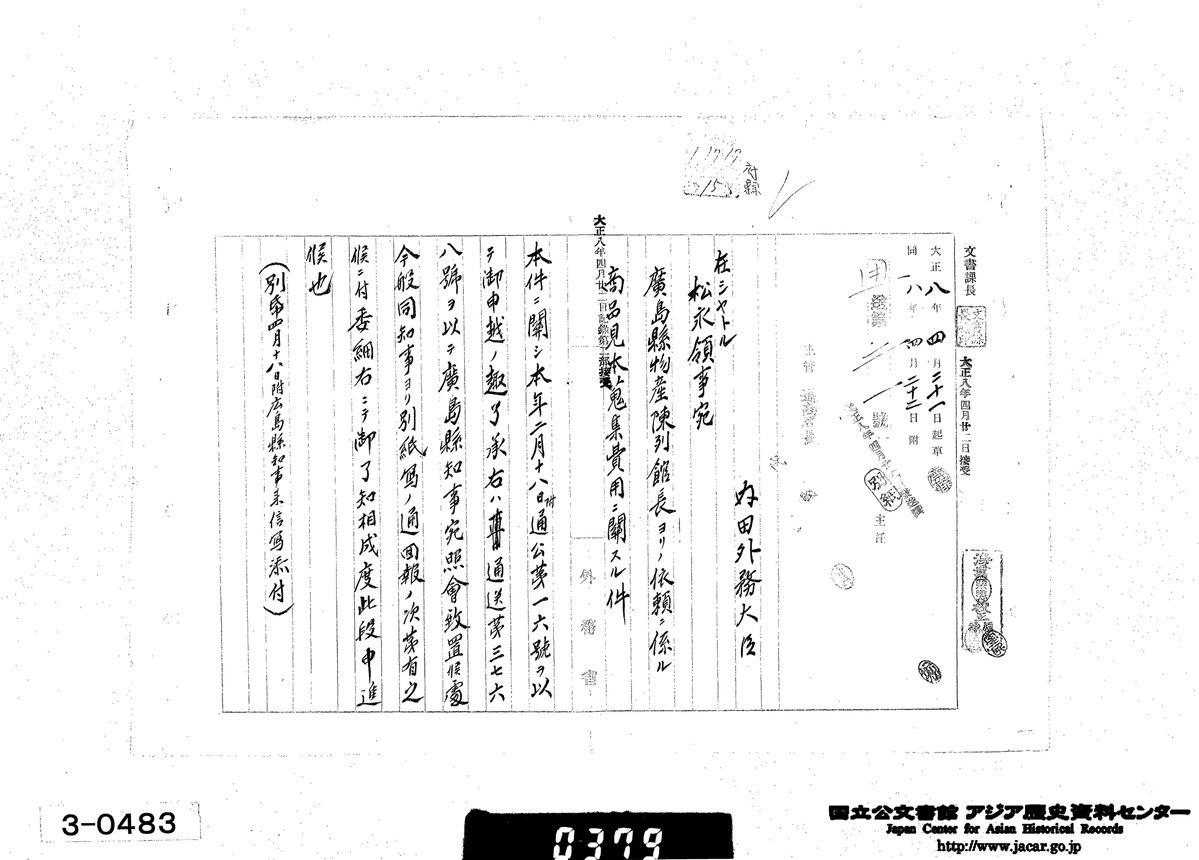 文書課長
大正八年四月廿二日接受
大正八年四月二十一日起草
同 八年四月二十二日附
別紙
主任
主管
内田外務大臣
在シヤトル
松永領事宛
廣島縣物産陳列館長ヨリノ依頼ニ係ル
商品見本蒐集費用ニ關スル件
外務省
本件ニ關シ本年二月十八日附通公第一六號ヲ以
テ御申越ノ趣了承右ハ通送第三七六
八號ヲ以テ廣島縣知事宛照會致置候處
今般同知事ヨリ別紙寫ノ通回報ノ次第有之
候ニ付委細右ニテ御了知相成度此段申進
候也
(別第四月十八日附広島縣知事来信写添付)
3-0483
0379
国立公文書館 アジア歴史資料センター
Japan Center for Asian Historical Records
http://www.jacar.go.jp